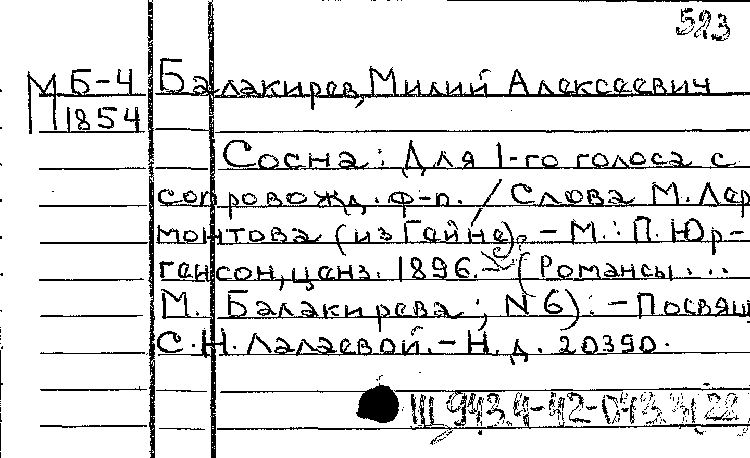 523
М Б-4 Балакирев, Милий Алексеевич
1854
Сосна: Для 1-го голоса с
сопровожд. ф-п. / Слова М. Лер
монтова (из Гейне). - М.: П. Юр-
генсон, ценз. 1896. - (Романсы...
М. Балакирева; N 6). - Посвящ
С.Н. Лалаевой. - Н.д. 20390.
III 943.4-42-043.4(22)